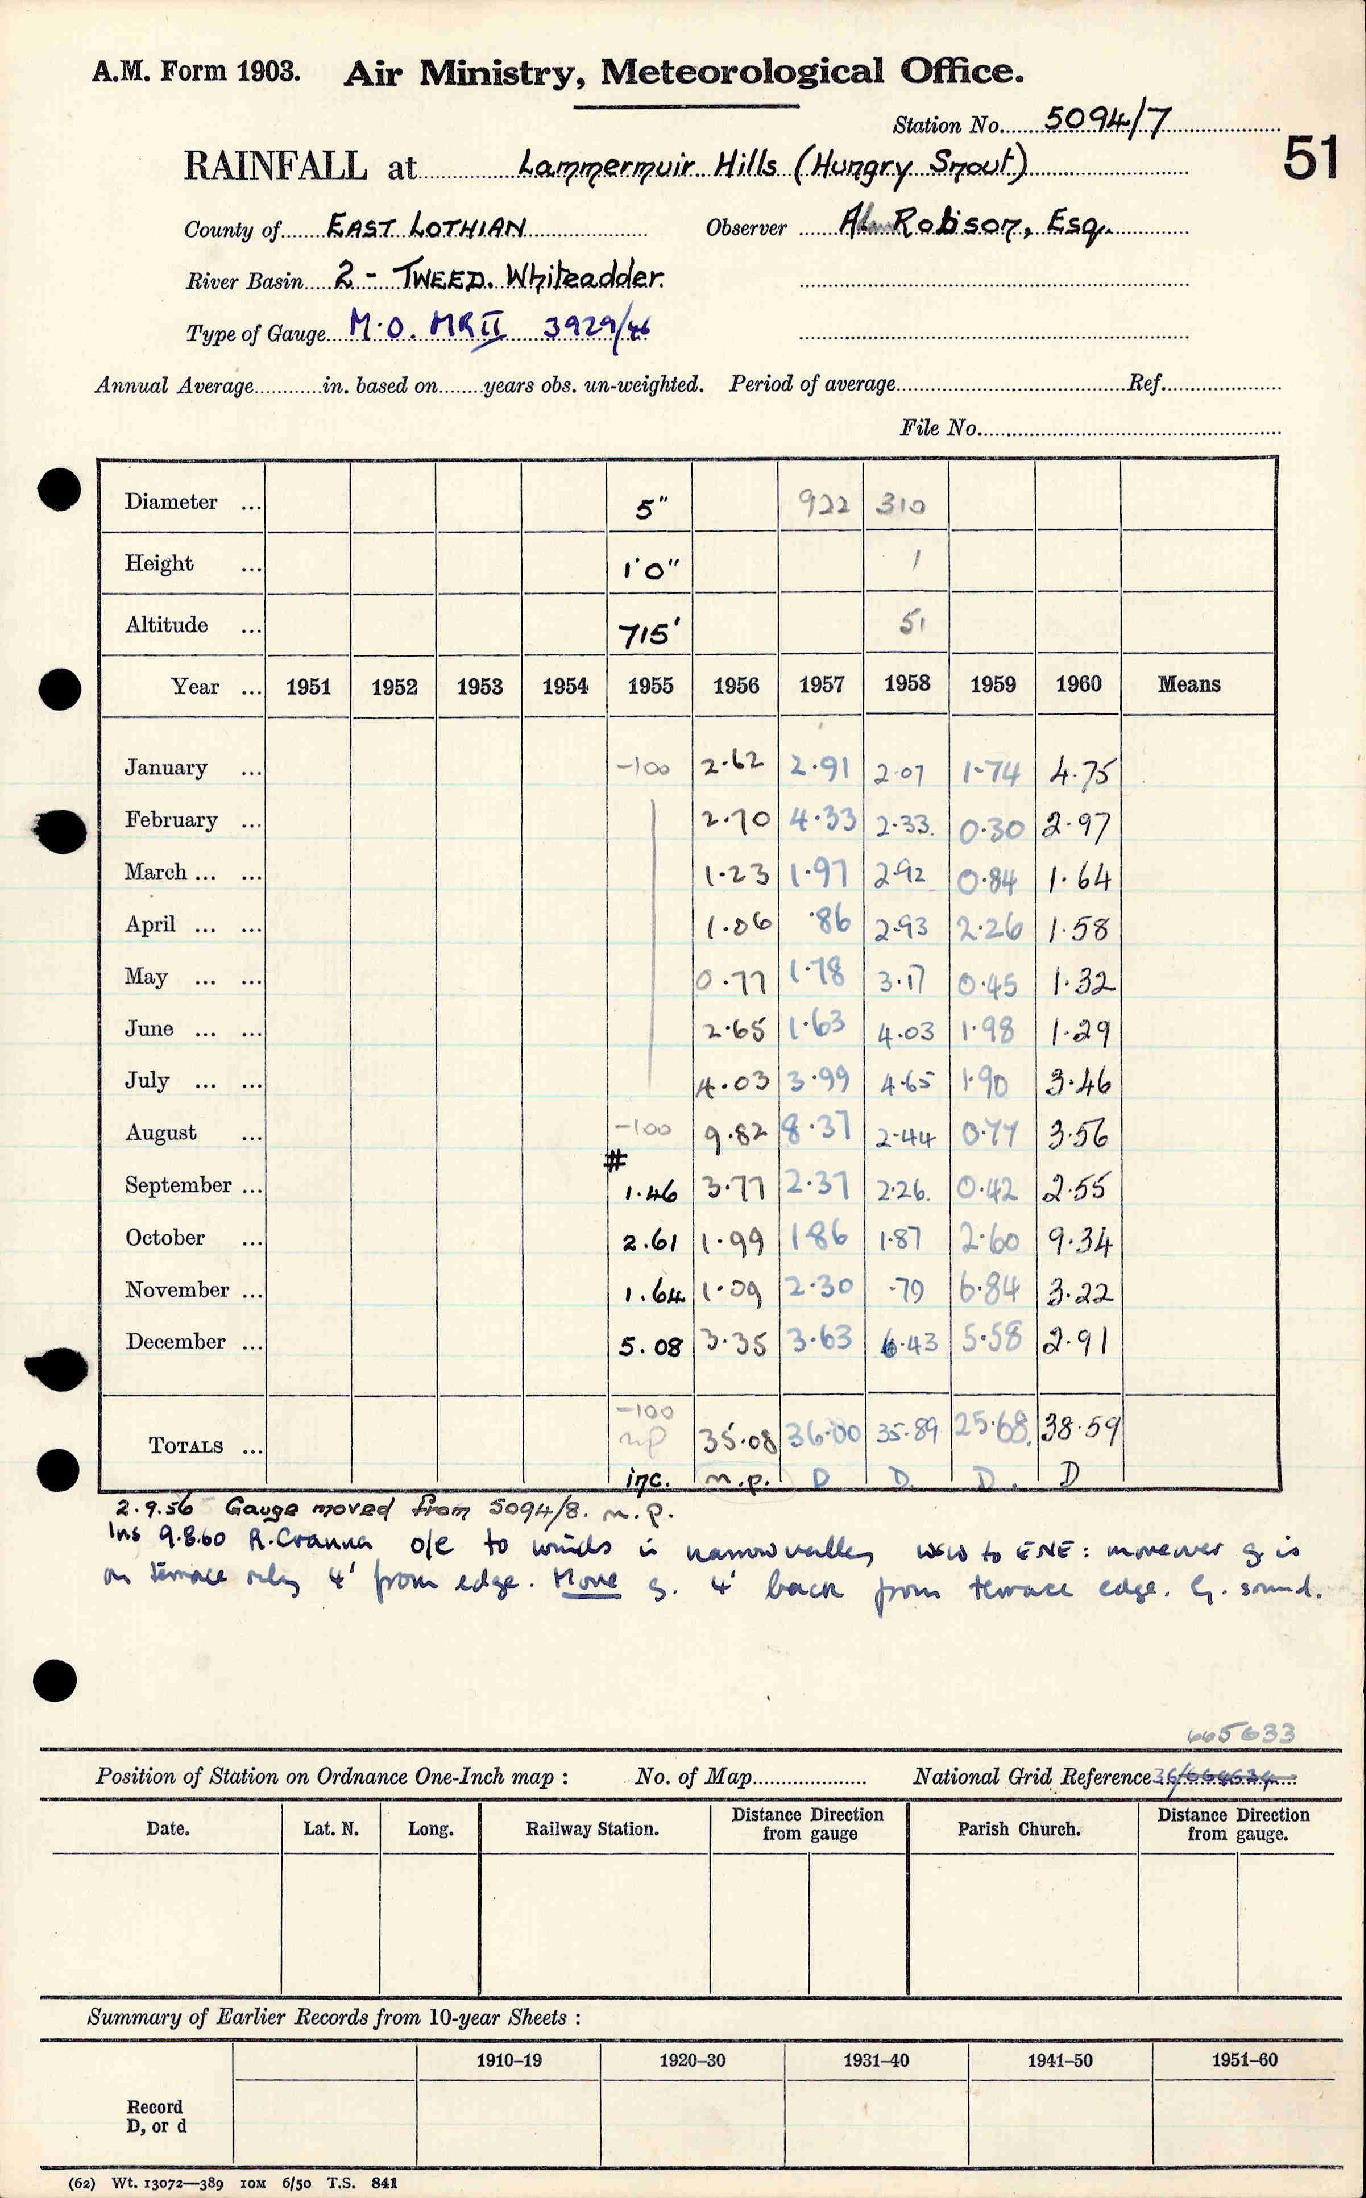 A.M. Form 1903. Air Ministry, Meteorological Office.
Station No. 5094/7
51
RAINFALL at Lammermuir Hills (Hungry Snout)
County of EAST LOTHIAN Observer Robison, Esq.
River Basin 2 - TWEED. Whiteadder.
Type of Gauge M.O. MRII 3929/46
Annual Average in. based on years obs. un-weighted. Period of average Ref.
File No.
Diameter ... 5" 922 310
Height ... 1'0" 1
Altitude ... 715' 51
Year ... 1951 1952 1953 1954 1955 1956 1957 1958 1959 1960 Means
January ... -100 2.62 2.91 2.07 1.74 4.75
February ... 2.70 4.33 2.33. 0.30 2.97
March ... ... 1.23 1.97 2.92 0.84 1.64
April ... ... 1.06 .86 2.93 2.26 1.58
May ... ... 0.77 1.78 3.17 0.45 1.32
June ... ... 2.65 1.63 4.03 1.98 1.29
July ... ... 4.03 3.99 4.65 1.90 3.46
August ... -100 9.82 8.37 2.44 0.77 3.56
#
September ... 1.46 3.77 2.37 2.26. 0.42 2.55
October ... 2.61 1.99 1.86 1.87 2.60 9.34
November ... 1.64 1.09 2.30 .79 6.84 3.22
December ... 5.08 3.35 3.63 6.43 5.58 2.91
-100
TOTALS ... np 35.08 36.00 35.89 25.68. 38.59
inc. n.p. D D. D. D
2.9.56 Gauge moved from 5094/8. n.p.
Ins 9.8.60 R. Cranna o/e to winds in narrow valley WSW to ENE: moreover g is
on terrace only 4' from edge. Move g. 4' back from terrace edge. G. sound.
665633
Position of Station on Ordnance One-Inch map : No. of Map National Grid Reference 36/664634
Date. Lat. N. Long. Railway Station. Distance Direction from gauge Parish Church. Distance Direction from gauge.
Summary of Earlier Records from 10-year Sheets :
1910–19 1920–30 1931–40 1941–50 1951–60
Record
D, or d
(62) Wt. 13072—389 10M 6/50 T.S. 841